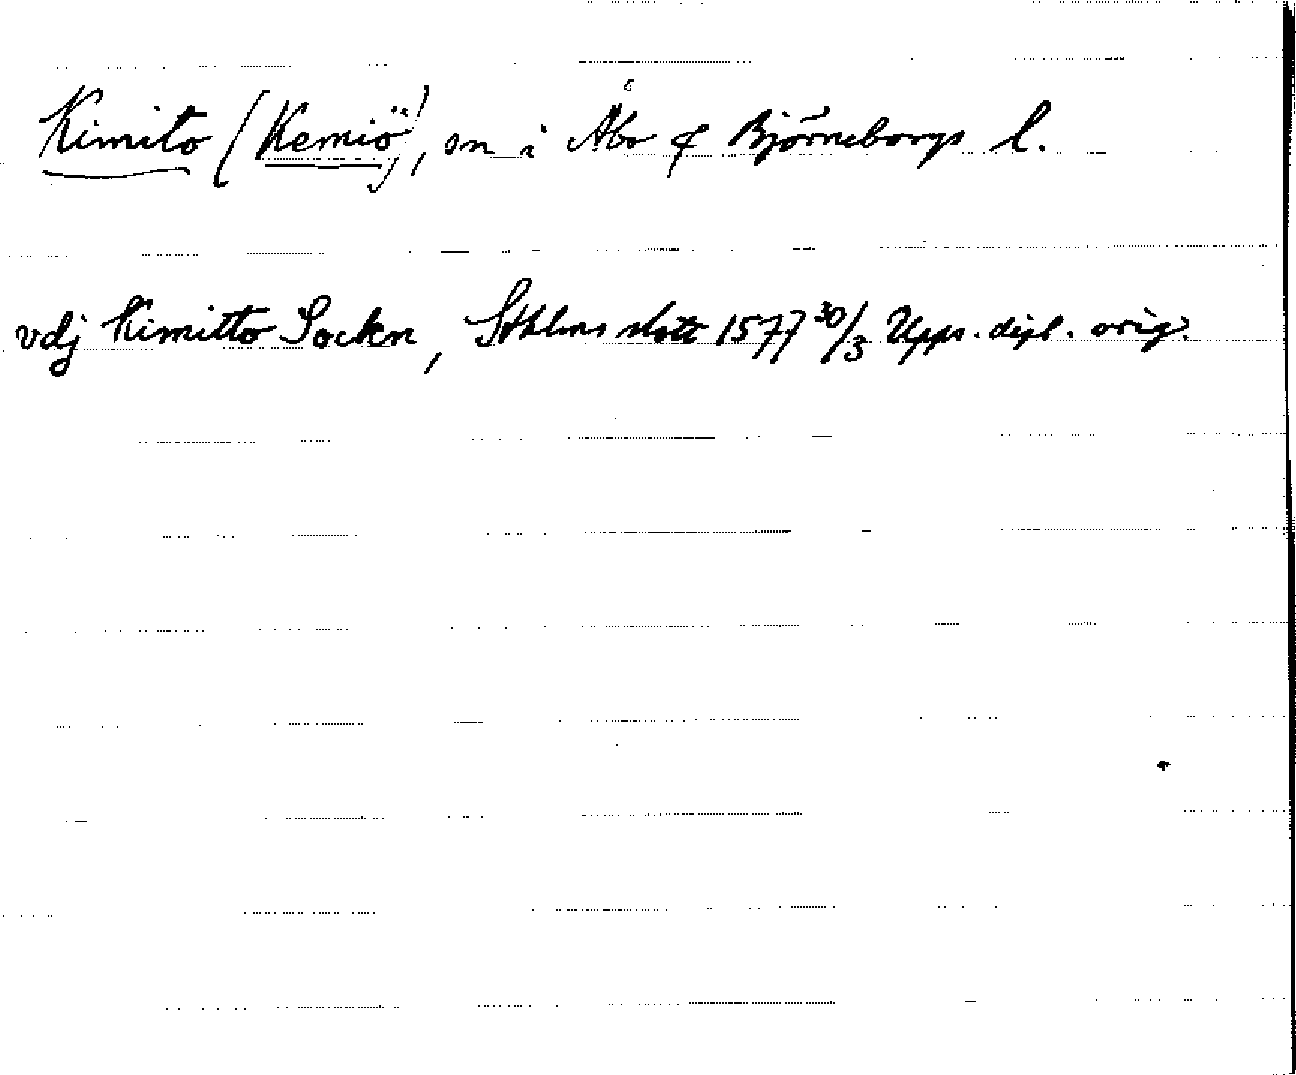 Kimito (Kemiö), sn i Åbo & Björneborgs l.
vdj Kimitto Sockn, Sthlms slott 1577 30/3 Upps. dipl. orig.